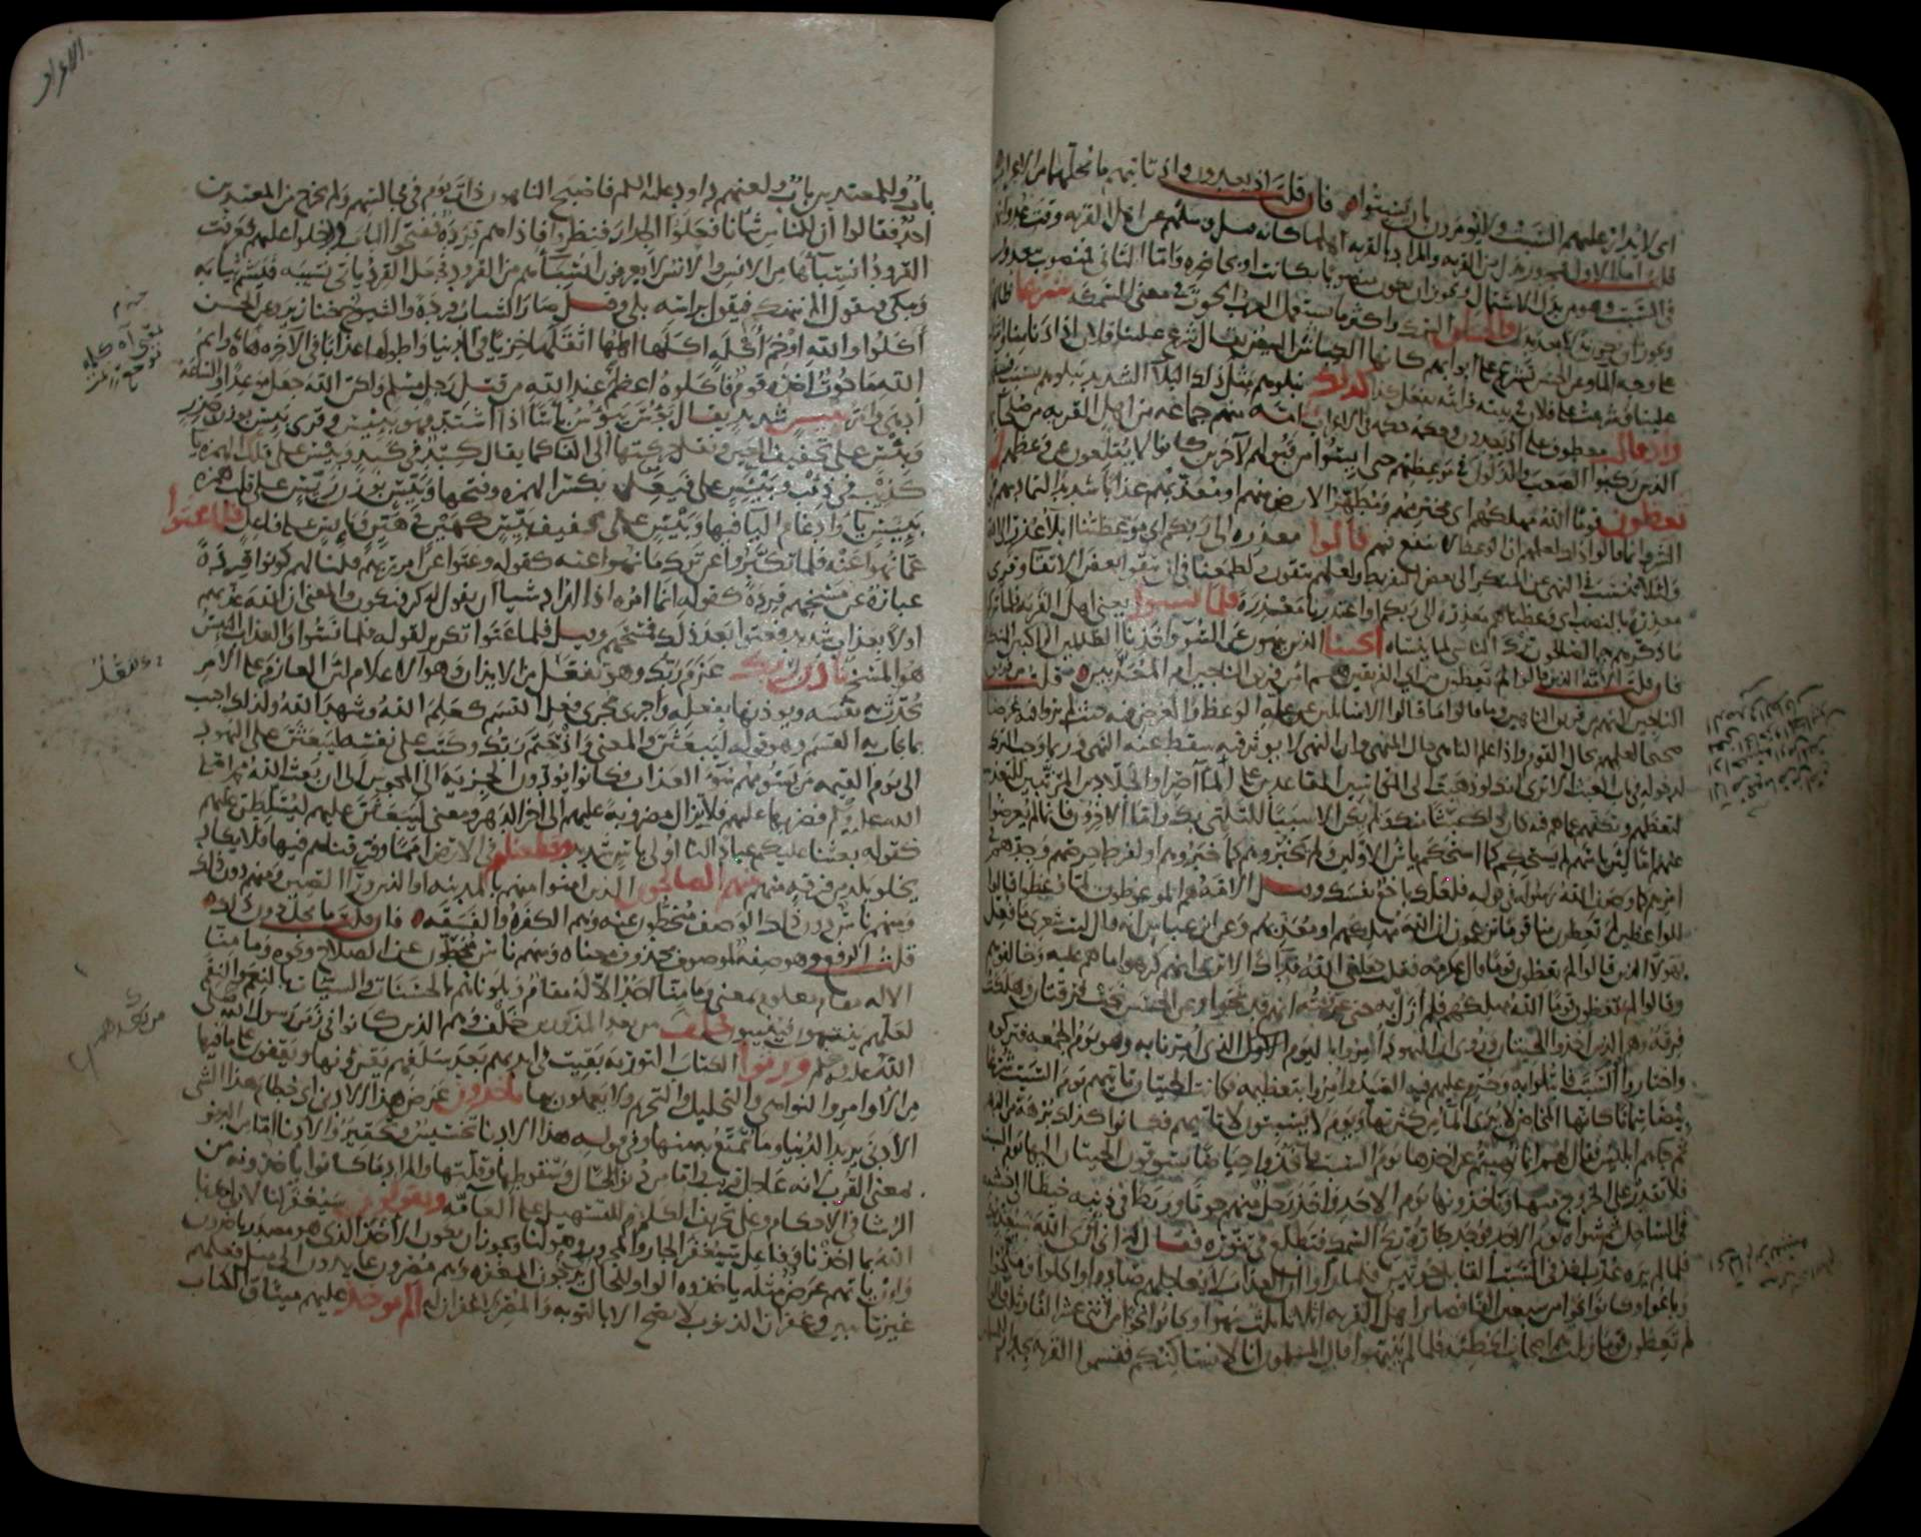 اى لا يدار عليهم السبت ولا يؤمرون بان يسبتوا فان قلت اذ يعدون واذ تاتيهم ما محلهما من الاعراب
قلت اما الاول فمجرور بدل من القريه والمراد بالقريه اهلها كانه قيل وسلهم عن اهل القريه وقت عدوانهم
فى السبت وهو من بدل الاشتمال ويجوز ان يكون منصوبا بكانت او بحاضره واما الثانى فمنصوب بيعدون
ويجوز ان يكون بدلا بعد بدل والحيتان السمك واكثر ما تستعمل العرب الحوت فى معنى السمكه شرعا ظاهرة
على وجه الما وعن الحسن تشرع على ابوابهم كانها الكباش البيض يقال شرع علينا فلان اذا دنا منا واشرف
علينا وشرعت على فلان فى بيته فرايته يفعل كذا كذلك نبلوهم مثل ذلك البلا الشديد نبلوهم بسبب فسقهم
واذ قالت معطوف على اذ يعدون وحكمه حكمه فى الاعراب امه منهم جماعه من اهل القريه من صلحائهم
الذين ركبوا الصعب والذلول فى موعظتهم حتى ايسوا من قبولهم لآخرين كانوا لا يقلعون عن وعظهم لم
تعظون قوما الله مهلكهم اى مخترمهم ومطهر الارض منهم او معذبهم عذابا شديدا لتماديهم فى
الشر وانما قالوا ذلك لعلمهم ان الوعظ لا ينفع فيهم قالوا معذره الى ربكم اى موعظتنا ابلا عذر الى الله
ولئلا ننسب فى النهى عن المنكر الى بعض التفريط ولعلهم يتقون لطمعنا فى ان يتقوا بعض الاتقا وقرى
معذرة بالنصب اى وعظناهم معذره الى ربكم او اعتذرنا معذرة فلما نسوا يعنى اهل القريه فلما تركوا
ما ذكرهم به الصالحون ترك الناسى لما ينساه انجينا الذين ينهون عن السوء واخذنا الظالمين الراكبين للمنكر
فان قلت الامه الذين قالوا لم تعظون من اى الفريقين هم امن فريق الناجين ام المعذبين قلت من فريق
الناجين لانهم من فريق الناهين وما قالوا ما قالوا الا سائلين عن عله الوعظ والغرض فيه حيث لم يروا فيه غرضا
صحيحا لعلمهم بحال القوم واذا علم الناهى حال المنهى وان النهى لا يوثر فيه سقط عنه النهى وربما وجب الترك
لدخوله فى باب العبث الا ترى انك لو ذهبت الى المكاسين القاعدين على المآصر او الجلادين المرتبين للتعذيب
لتعظهم وتكفهم عما هم فيه كان ذلك عبثا منك ولم يكن الا سببا للتلهى بك واما الآخرون فانما لم يعرضوا
عنهم اما لان ياسهم لم يستحكم كما استحكم ياس الاولين ولم يخبروهم كما خبروهم او لفرط حرصهم وجدهم فى
امرهم كما وصف الله رسوله فى قوله فلعلك باخع نفسك وقيل الامه هم الموعوظون لما وعظوا قالوا
للواعظين لم تعظون منا قوما تزعمون ان الله مهلكهم او معذبهم وعن ابن عباس انه قال ليت شعرى ما فعل
بهولاء الذين قالوا لم تعظون قوما قال عكرمه فقلت جعلنى الله فداك الا ترى انهم كرهوا ما هم عليه وخالفوهم
وقالوا لم تعظون قوما الله مهلكهم فلم ازل به حتى عرفته انهم قد نجوا وعن الحسن نجت فرقتان وهلكت
فرقه وهم الذين اخذوا الحيتان وروى ان اليهود امروا باليوم الذى امرنا به وهو يوم الجمعه فتركوه
واختاروا السبت فابتلوا به وحرم عليهم فيه الصيد وامروا بتعظيمه فكانت الحيتان تاتيهم يوم السبت شرعا
بيضا سمانا كانها المخاض لا يرى الما من كثرتها ويوم لا يسبتون لا تاتيهم فكانوا كذلك برهة من الدهر
ثم جاهم ابليس فقال لهم انما نهيتم عن اخذها يوم السبت فاتخذوا حياضا تسوقون الحيتان اليها يوم السبت
فلا تقدر على الخروج منها وتاخذونها يوم الاحد واخذ رجل منهم حوتا وربط فى ذنبه خيطا الى خشبه
فى الساحل ثم شواه يوم الاحد فوجد جاره ريح السمك فتطلع فى تنوره فقال له انى ارى الله سيعذبك
فلما لم يره عذب اخذ فى السبت القابل حوتين فلما راوا ان العذاب لا يعاجلهم صادوا واكلوا وملحوا
وباعوا وكانوا نحوا من سبعين الفا فصار اهل القريه اثلاثا ثلث نهوا وكانوا نحوا من اثنى عشر الفا وثلث قالوا
لم تعظون قوما وثلث هم اصحاب الخطيئه فلما لم ينتهوا قال المسلمون انا لا نساكنكم فقسموا القريه بجدار للمسلمين
الاعراف
باب وللمعتدين باب ولعنهم داود عليه السلم فاصبح الناهون ذات يوم فى مجالسهم ولم يخرج من المعتدين
احد فقالوا ان للناس شانا فعلوا الجدار فنظروا فاذا هم قردة ففتحوا الباب ودخلوا عليهم فعرفت
القرود انسباها من الانس والانس لا يعرفون انسباهم من القرود فجعل القرد ياتى نسيبه فيشم ثيابه
ويبكى فيقول الم ننهك فيقول براسه بلى وقيل صار الشباب قردة والشيوخ خنازير وعن الحسن
اكلوا والله اوخم اكله اكلها اهلها اثقلها خزيا فى الدنيا واطولها عذابا فى الآخره هاه وايم
الله ما حوت اخذه قوم فاكلوه اعظم عند الله من قتل رجل مسلم ولكن الله جعل موعدا والساعه
ادهى وامر بئيس شديد يقال بؤس يبؤس باسا اذا اشتد فهو بئيس وقرى بئس بوزن حذر
وبئس على تخفيف العين ونقل حركتها الى الفا كما يقال كبد فى كبد وبيس على قلب الهمزه يا
كذيب فى ذئب وبيئس على فيعل بكسر الهمزه وفتحها وبيس بوزن ريس على قلب همزة
بيئس يا وادغام اليا فيها وبيس على تخفيف بيس كهين فى هين وبائس على فاعل فلما عتوا
عما نهوا عنه فلما تكبروا عن ترك ما نهوا عنه كقوله وعتوا عن امر ربهم قلنا لهم كونوا قردة
عبارة عن مسخهم قردة كقوله انما امره اذا اراد شيا ان يقول له كن فيكون والمعنى ان الله عذبهم
اولا بعذاب شديد فعتوا بعد ذلك فمسخهم وقيل فلما عتوا تكرير لقوله فلما نسوا والعذاب البئيس
هو المسخ تاذن ربك عزم ربك وهو تفعل من الايذان وهو الاعلام لان العازم على الامر
يحدث به نفسه ويوذنها بفعله واجرى مجرى فعل القسم كعلم الله وشهد الله ولذلك اجيب
بما يجاب به القسم وهو قوله ليبعثن والمعنى واذ حتم ربك وكتب على نفسه ليبعثن على اليهود
الى يوم القيمه من يسومهم سوء العذاب فكانوا يودون الجزيه الى المجوس الى ان بعث الله محمدا صلى
الله عليه وسلم فضربها عليهم فلا تزال مضروبة عليهم الى آخر الدهر ومعنى ليبعثن عليهم ليسلطن عليهم
كقوله بعثنا عليكم عبادا لنا اولى باس شديد وقطعناهم فى الارض امما وفرقناهم فيها فلا يكاد
يخلو بلد من فرقه منهم منهم الصالحون الذين امنوا منهم بالمدينه او الذين ورا الصين ومنهم دون ذلك
ومنهم ناس دون ذلك الوصف منحطون عنه وهم الكفرة والفسقه فان قلت ما محل دون ذلك
قلت الرفع وهو صفه لموصوف محذوف معناه ومنهم ناس منحطون عن الصلاح ونحوه وما منا
الا له مقام معلوم بمعنى وما منا احد الا له مقام وبلوناهم بالحسنات والسيئات بالنعم والنقم
لعلهم ينتهون فينيبون فخلف من بعد المذكورين خلف وهم الذين كانوا فى زمن رسول الله صلى
الله عليه وسلم ورثوا الكتاب التوريه بقيت فى ايديهم بعد سلفهم يقرءونها ويقفون على ما فيها
من الاوامر والنواهى والتحليل والتحريم ولا يعملون بها ياخذون عرض هذا الادنى اى حطام هذا الشى
الادنى يريد الدنيا وما يتمتع به منها وفى قوله هذا الادنى تخسيس وتحقير والادنى اما من الدنو
بمعنى القرب لانه عاجل قريب واما من دنو الحال وسقوطها وقلتها والمراد ما كانوا ياخذونه من
الرشا فى الاحكام وعلى تحريف الكلم للتسهيل على العامه ويقولون سيغفر لنا لا يواخذنا
الله بما اخذنا وفاعل سيغفر الجار والمجرور وهو لنا ويجوز ان يكون الاخذ الذى هو مصدر ياخذون
وان ياتهم عرض مثله ياخذوه الواو للحال يرجون المغفره وهم مصرون عايدون الى مثل فعلهم
غير تائبين وغفران الذنوب لا يصح الا بالتوبه والمصر لا غفران له الم يوخذ عليهم ميثاق الكتاب